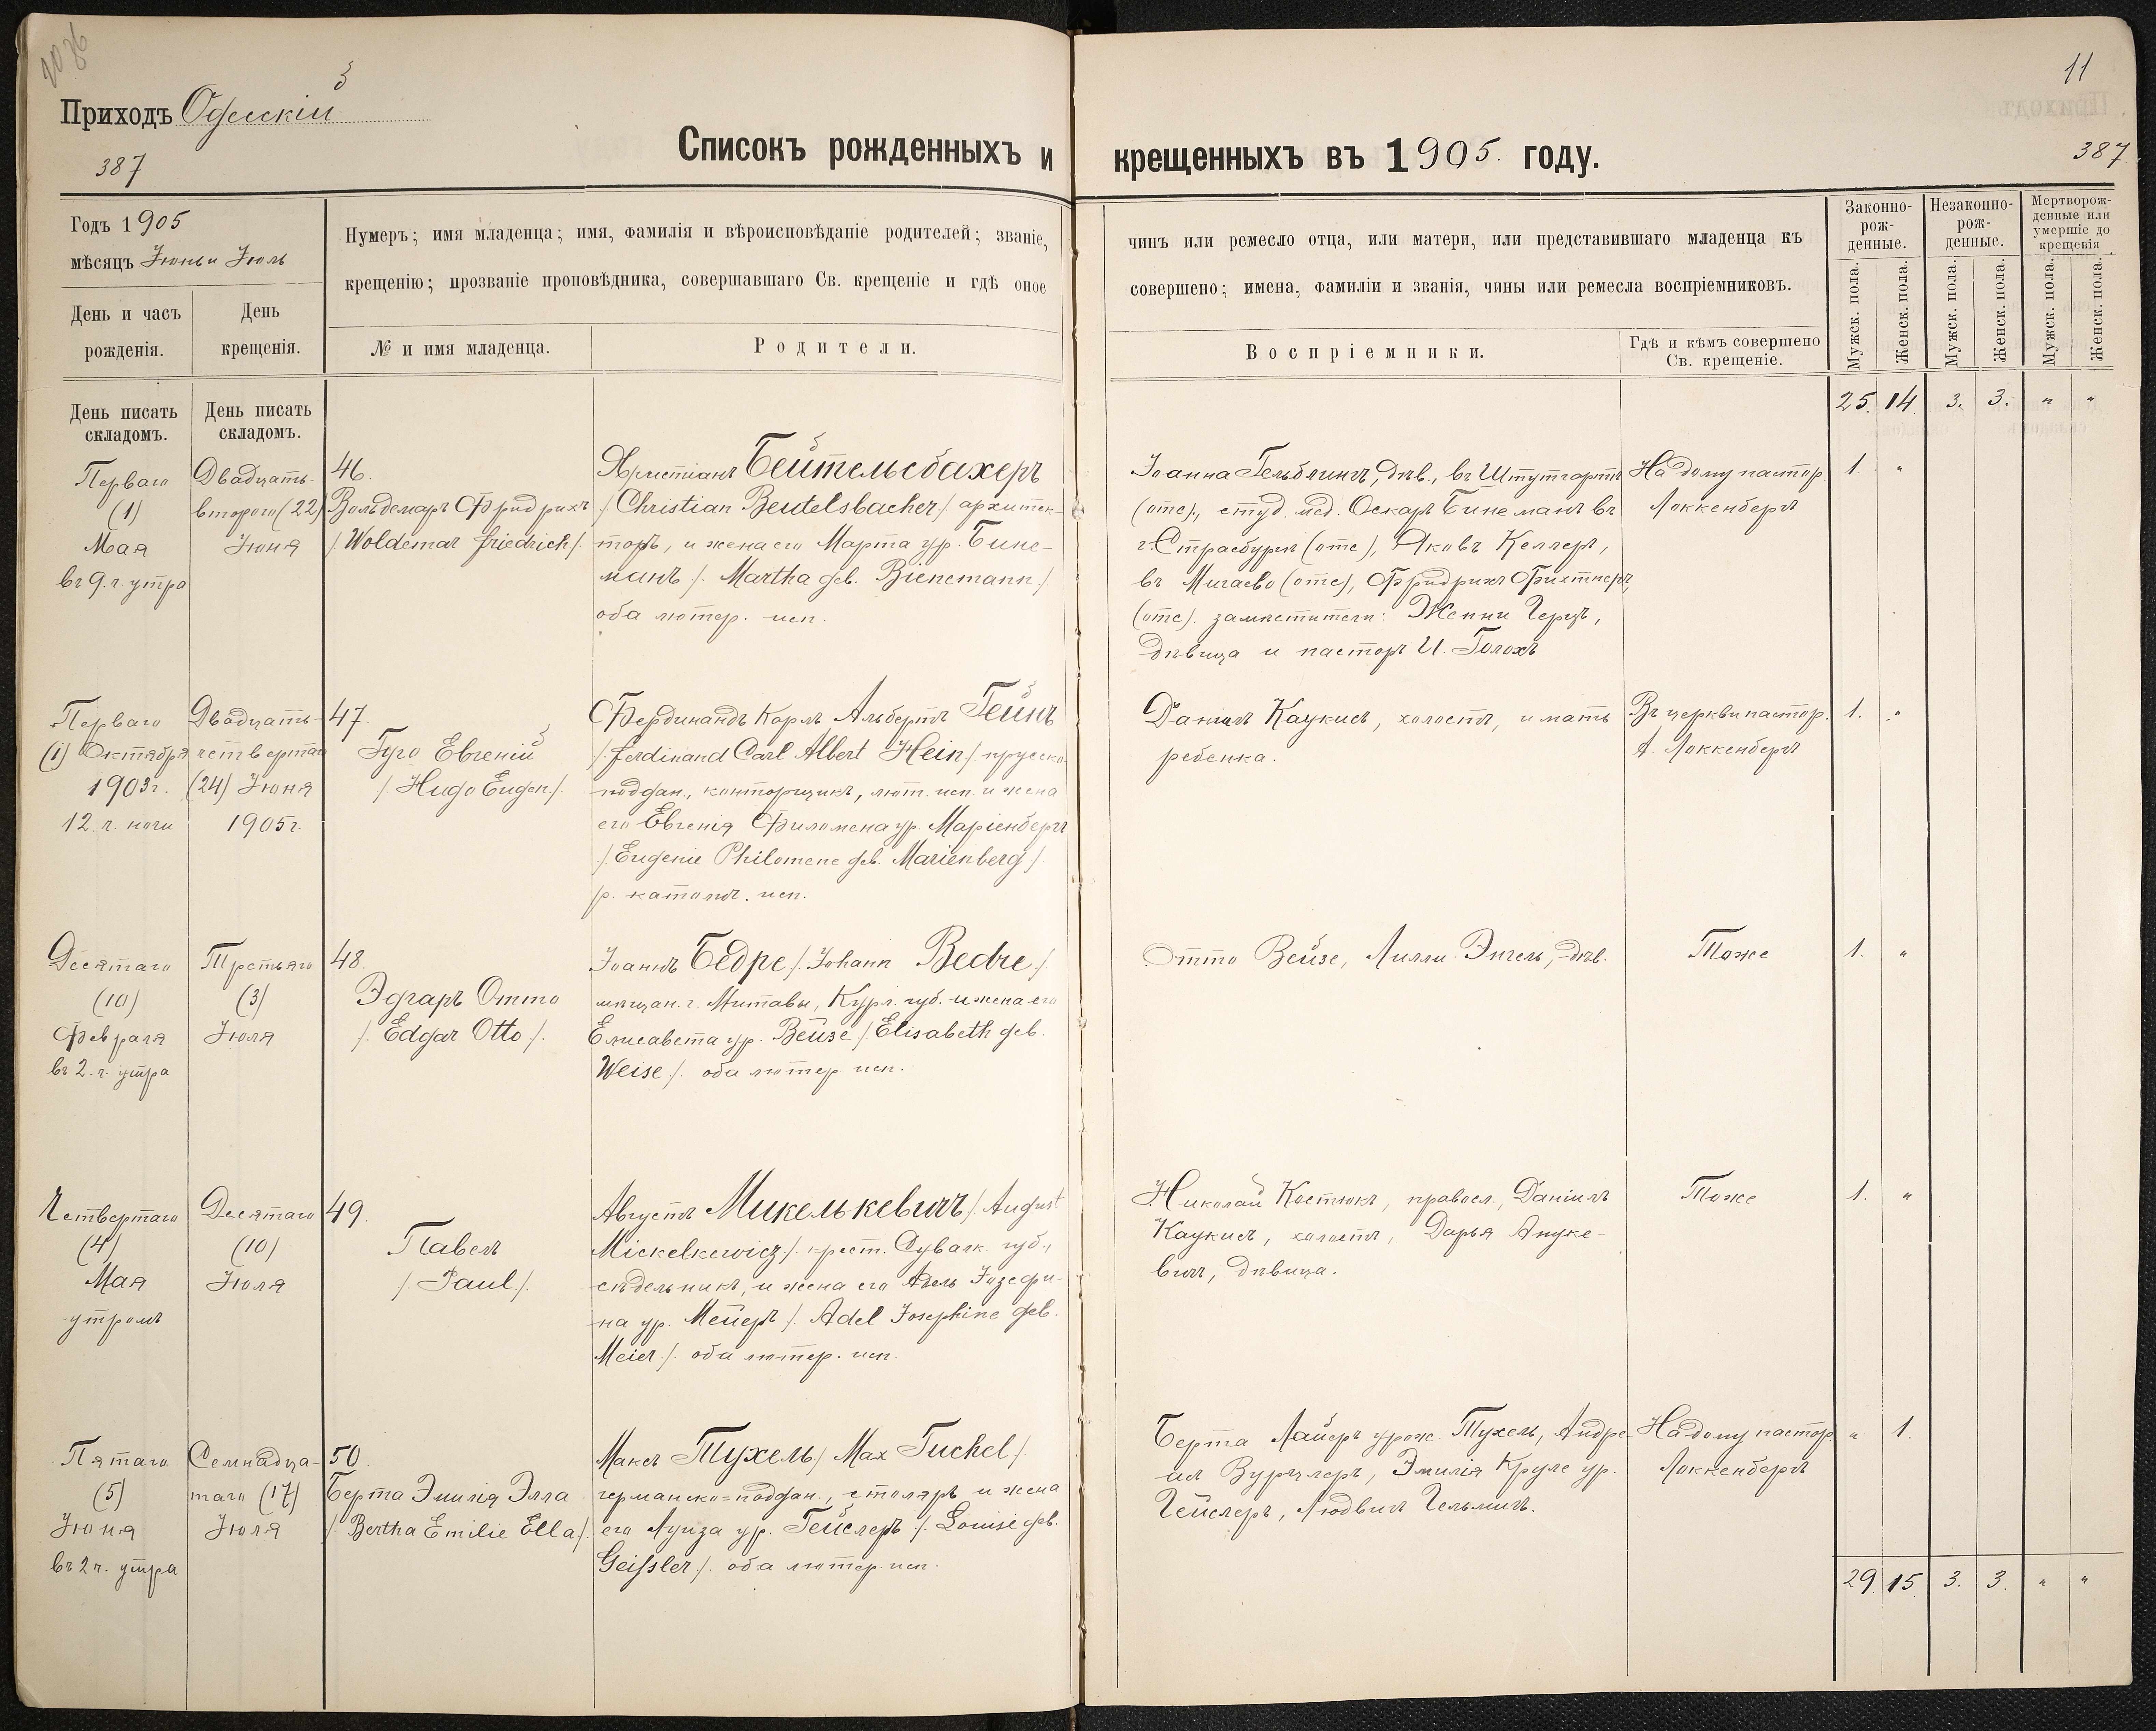 Приходъ Одесскій
387
Списокъ рожденныхъ и крещенныхъ въ 1905. году.
11
387
Годъ 1905
мѣсяцъ Іюнь и Іюль
День и часъ рожденія.
День крещенія.
Нумеръ; имя младенца; имя, фамилія и вѣроисповѣданіе родителей; званіе, чинъ или ремесло отца, или матери, или представившаго младенца къ
крещенію; прозваніе проповѣдника, совершавшаго Св. крещеніе и гдѣ оное совершено; имена, фамиліи и званія, чины или ремесла воспріемниковъ.
№ и имя младенца.
Родители.
Воспріемники.
Гдѣ и кѣмъ совершено
Св. крещеніе.
Законно-
рож-
денные.
Незаконно-
рож-
денные.
Мертворож-
денные или
умершіе до
крещенія
Мужск. пола.
Женск. пола.
Мужск. пола.
Женск. пола.
Мужск. пола.
Женск. пола.
День писать
складомъ.
День писать
складомъ.
25. 14. 3. 3. " "
Перваго
(1)
Мая
въ 9. ч. утра
Двадцать
второго (22)
Іюня
46.
Вольдемаръ Фридрихъ
/. Woldemar Friedrich /.
Христіанъ Бейтельсбахеръ
/. Christian Beutelsbacher /. архитек-
торъ, и жена его Марта ур. Бине-
манъ /. Martha geb. Bienemann /.
оба лютер. исп.
Іоанна Гельблингъ, дѣв., въ Штутгартѣ
(отс), студ. мед. Оскаръ Бинеманъ въ
г. Страсбургѣ (отс), Яковъ Келлеръ,
въ Мигаево (отс), Фридрихъ Фихтнеръ,
(отс). замѣстители: Женни Герцъ,
дѣвица и пасторъ И. Голохъ
На дому пастор.
Локкенбергъ
1. "
Перваго
(1) Октября
1903 г.
12. ч. ночи
Двадцать-
четвертаго
(24) Іюня
1905 г.
47.
Гуго Евгеній
/. Hugo Eugen. /.
Фердинандъ Карлъ Альбертъ Гейнъ
/. Ferdinand Carl Albert Hein /. прусско-
поддан., конторщикъ, лют. исп. и жена
его Евгенія Филомена ур. Маріенбергъ
/. Eugenie Philomene geb. Marienberg /
р. катол. исп.
Даніилъ Каукисъ, холостъ, и мать
ребенка.
Въ церкви пастор.
А. Локкенбергъ
1. "
Десятаго
(10)
Февраля
въ 2. ч. утра
Третьяго
(3)
Іюля
48.
Эдгаръ Отто
/. Edgar Otto /.
Іоаннъ Бедре /. Johann Bedre /
мѣщан. г. Митавы, Курл. губ. и жена его
Елисавета ур. Вейзе /. Elisabeth geb.
Weise /. оба лютер. исп.
Отто Вейзе, Лилли Энгель, дѣв.
Тоже
1. "
Четвертаго
(4)
Мая
утромъ
Десятаго
(10)
Іюля
49.
Павелъ
/. Paul /.
Августъ Микелькевичъ /. August
Mickelkewicz /. крест. Сувалк. губ.,
сѣдельникъ, и жена его Адель Іозефи-
на ур. Мейеръ /. Adel Josephine geb.
Meier /. оба лютер. исп.
Николай Костюкъ, правосл., Даніилъ
Каукисъ, холостъ, Дарья
дѣвица.
Тоже
1. "
Пятаго
(5)
Іюня
въ 2 ч. утра
Семнадца-
таго (17)
Іюля
50.
Берта Эмилія Элла
/. Bertha Emilie Ella /.
Максъ Тухель /. Max Tuchel /.
германско-поддан., столяръ и жена
его Луиза ур. Гейслеръ /. Louise geb.
Geissler /. оба лютер. исп.
Берта Лайеръ урож. Тухель, Андре-
асъ Вурцлеръ, Эмилія Круле ур.
Гейслеръ, Людвигъ Гельмигъ.
На дому пастор.
Локкенбергъ
" 1.
29. 15. 3. 3. " "